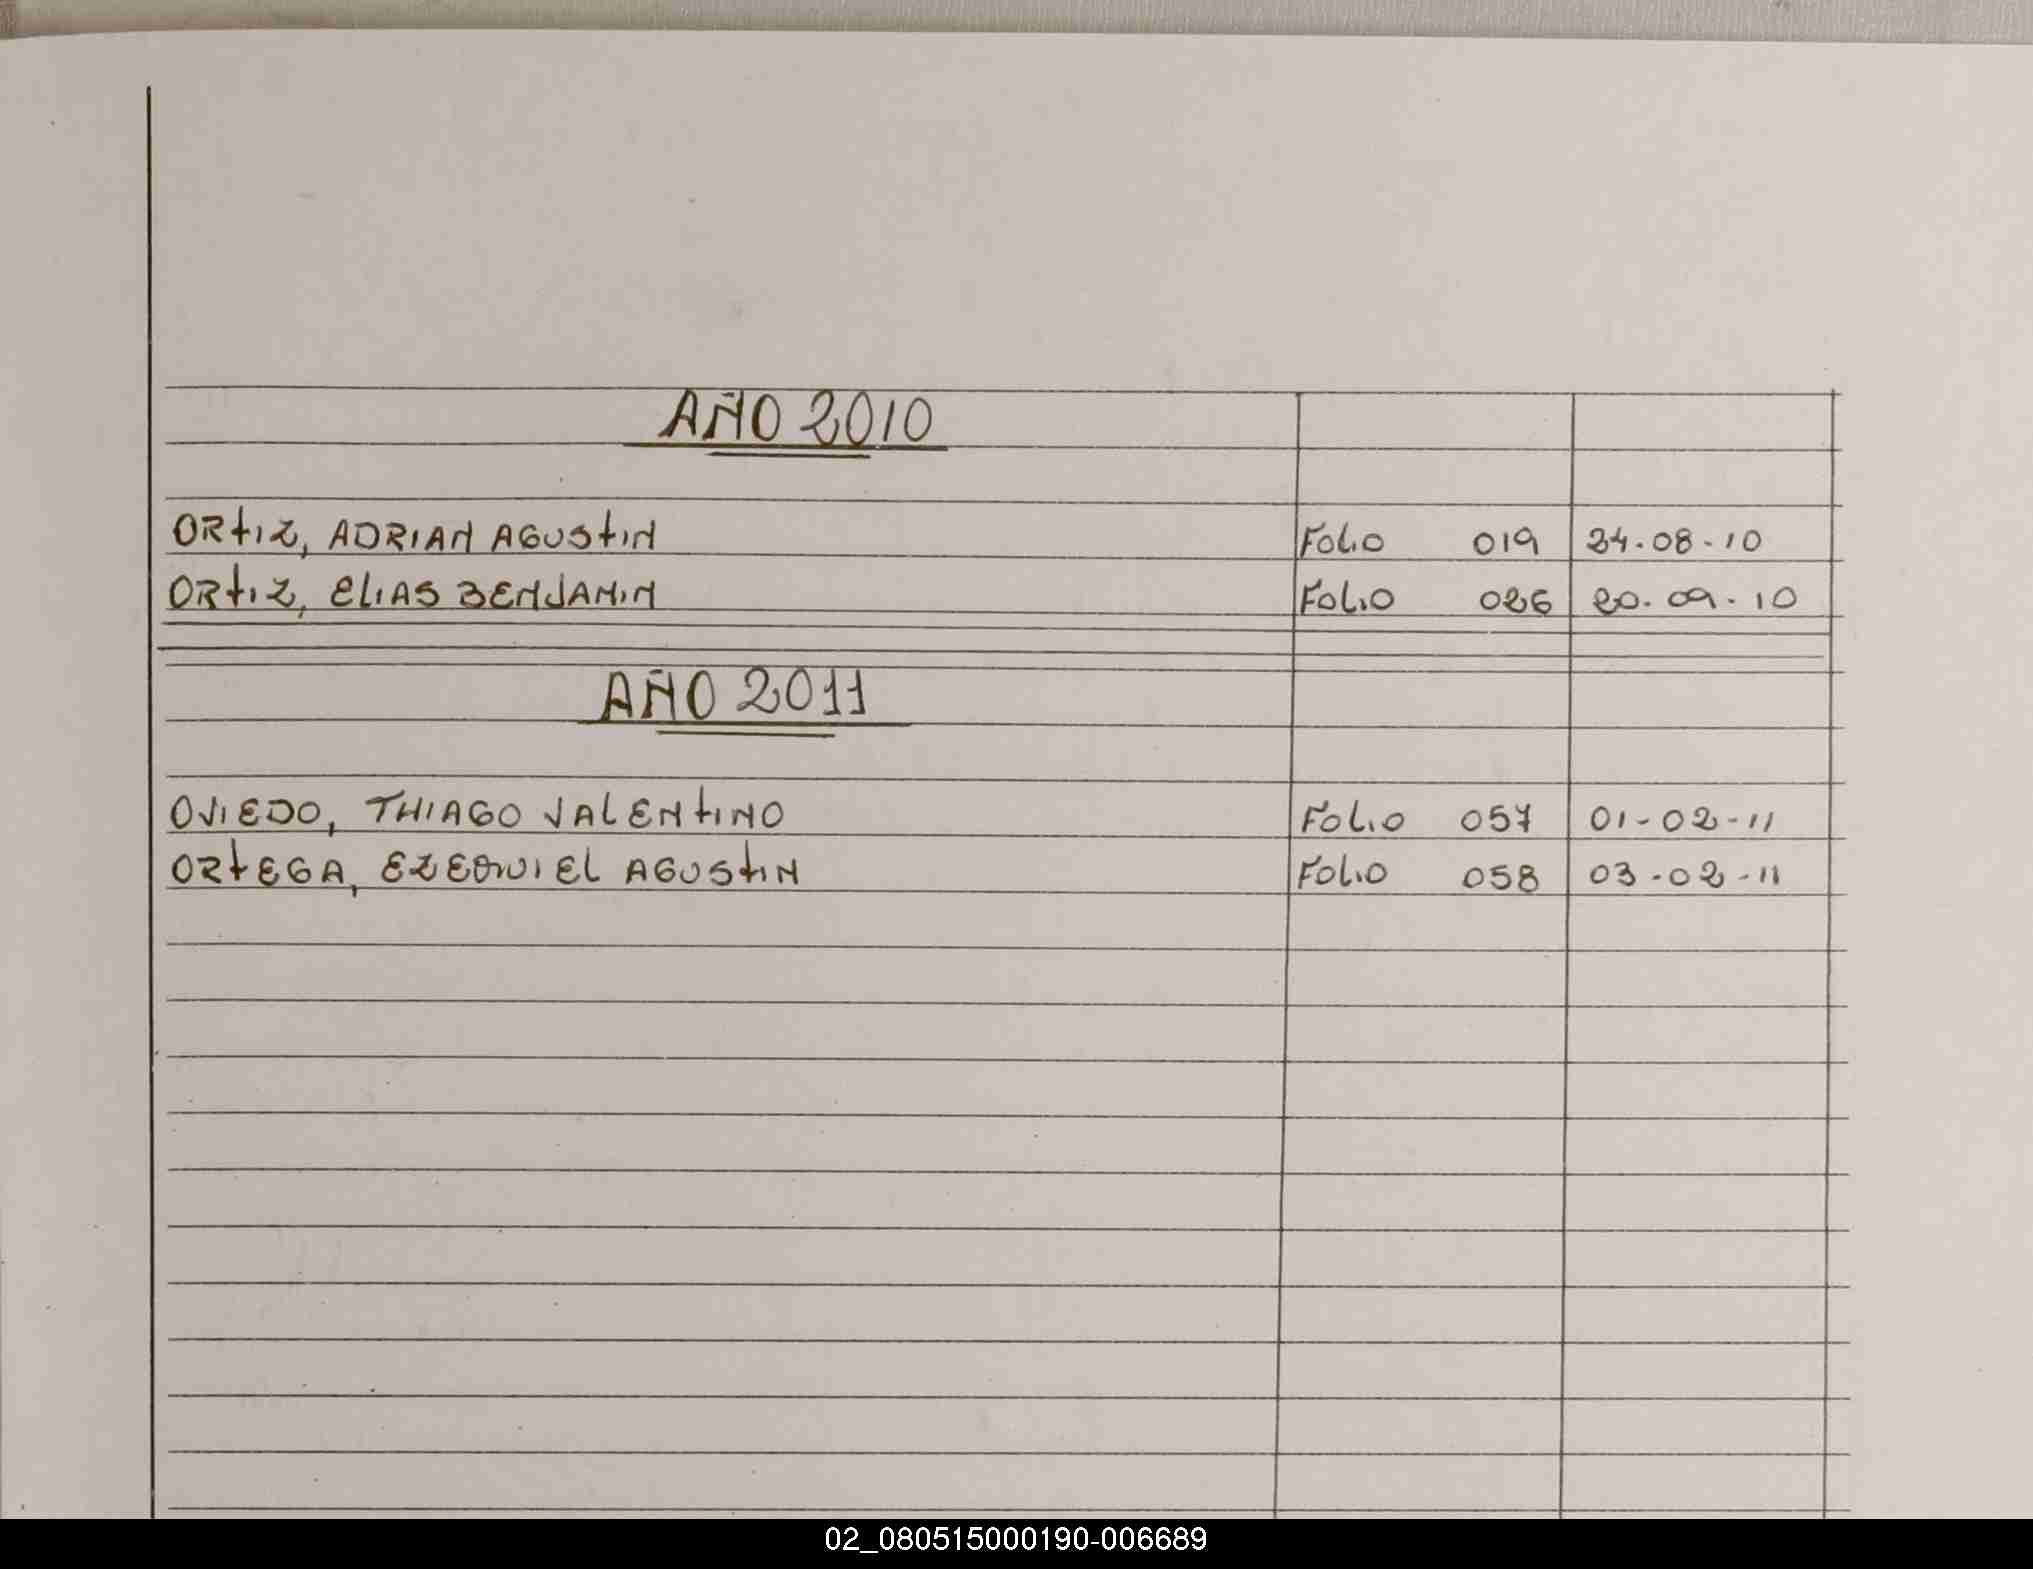 AÑO 2010
ORTIZ, ADRIAN AGUSTIN Folio 019 24-08-10
ORTIZ, ELIAS BENJAMIN Folio 026 20-09-10
AÑO 2011
OVIEDO, THIAGO VALENTINO Folio 057 01-02-11
ORTEGA, EZEQUIEL AGUSTIN Folio 058 03-02-11
02_080515000190-006689